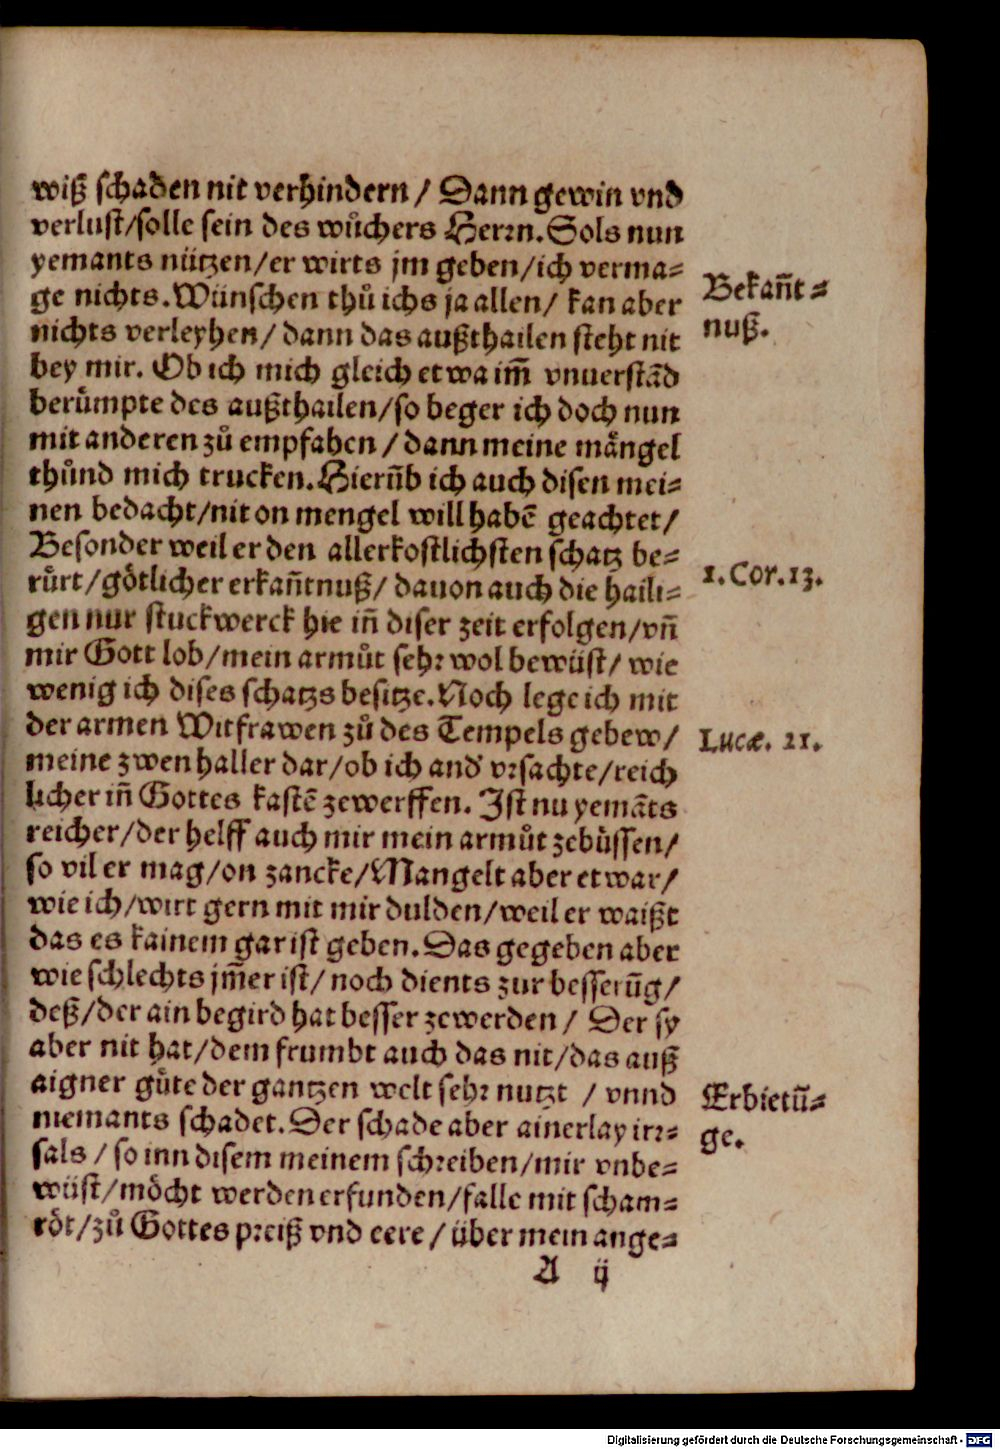 wiß schaden nit verhindern / Dann gewin vnd
verlust/solle sein des wůchers Herrn. Sols nun
yemants nützen/er wirts jm geben/ich verma⸗
ge nichts. Wünschen thů ichs ja allen/ kan aber
nichts verleyhen/ dann das außthailen steht nit
bey mir. Ob ich mich gleich etwa im̃ vnuerstãd
berůmpte des außthailen/so beger ich doch nun
mit anderen zů empfahen / dann meine mängel
thůnd mich trucken. Hierũb ich auch disen mei⸗
nen bedacht/nit on mengel will habẽ geachtet/
Besonder weil er den allerkostlichsten schatz be⸗
růrt/götlicher erkañtnuß/ dauon auch die haili⸗
gen nur stuckwerck hie iñ diser zeit erfolgen/vñ
mir Gott lob/mein armůt sehr wol bewüst/ wie
wenig ich dises schatzs besitze. Noch lege ich mit
der armen Witfrawen zů des Tempels gebew/
meine zwen haller dar/ob ich and' vrsachte/reich
licher iñ Gottes kastẽ zewerffen. Ist nu yemãts
reicher/der helff auch mir mein armůt zebůssen/
so vil er mag/on zancke/Mangelt aber etwar/
wie ich/wirt gern mit mir dulden/weil er waißt
das es kainem gar ist geben. Das gegeben aber
wie schlechts jm̃er ist/ noch dients zur besserũg/
deß/der ain begird hat besser zewerden / Der sy
aber nit hat/dem frumbt auch das nit/das auß
aigner gůte der gantzen welt sehr nutzt / vnnd
niemants schadet. Der schade aber ainerlay irr⸗
sals / so inn disem meinem schreiben/mir vnbe⸗
wüst/möcht werden erfunden/falle mit scham⸗
röt/zů Gottes preiß vnd eere / über mein ange⸗
A ij
Bekañt⸗
nuß.
1. Cor. 13.
Lucæ. 21.
Erbietũ⸗
ge.
Digitalisierung gefördert durch die Deutsche Forschungsgemeinschaft - DFG